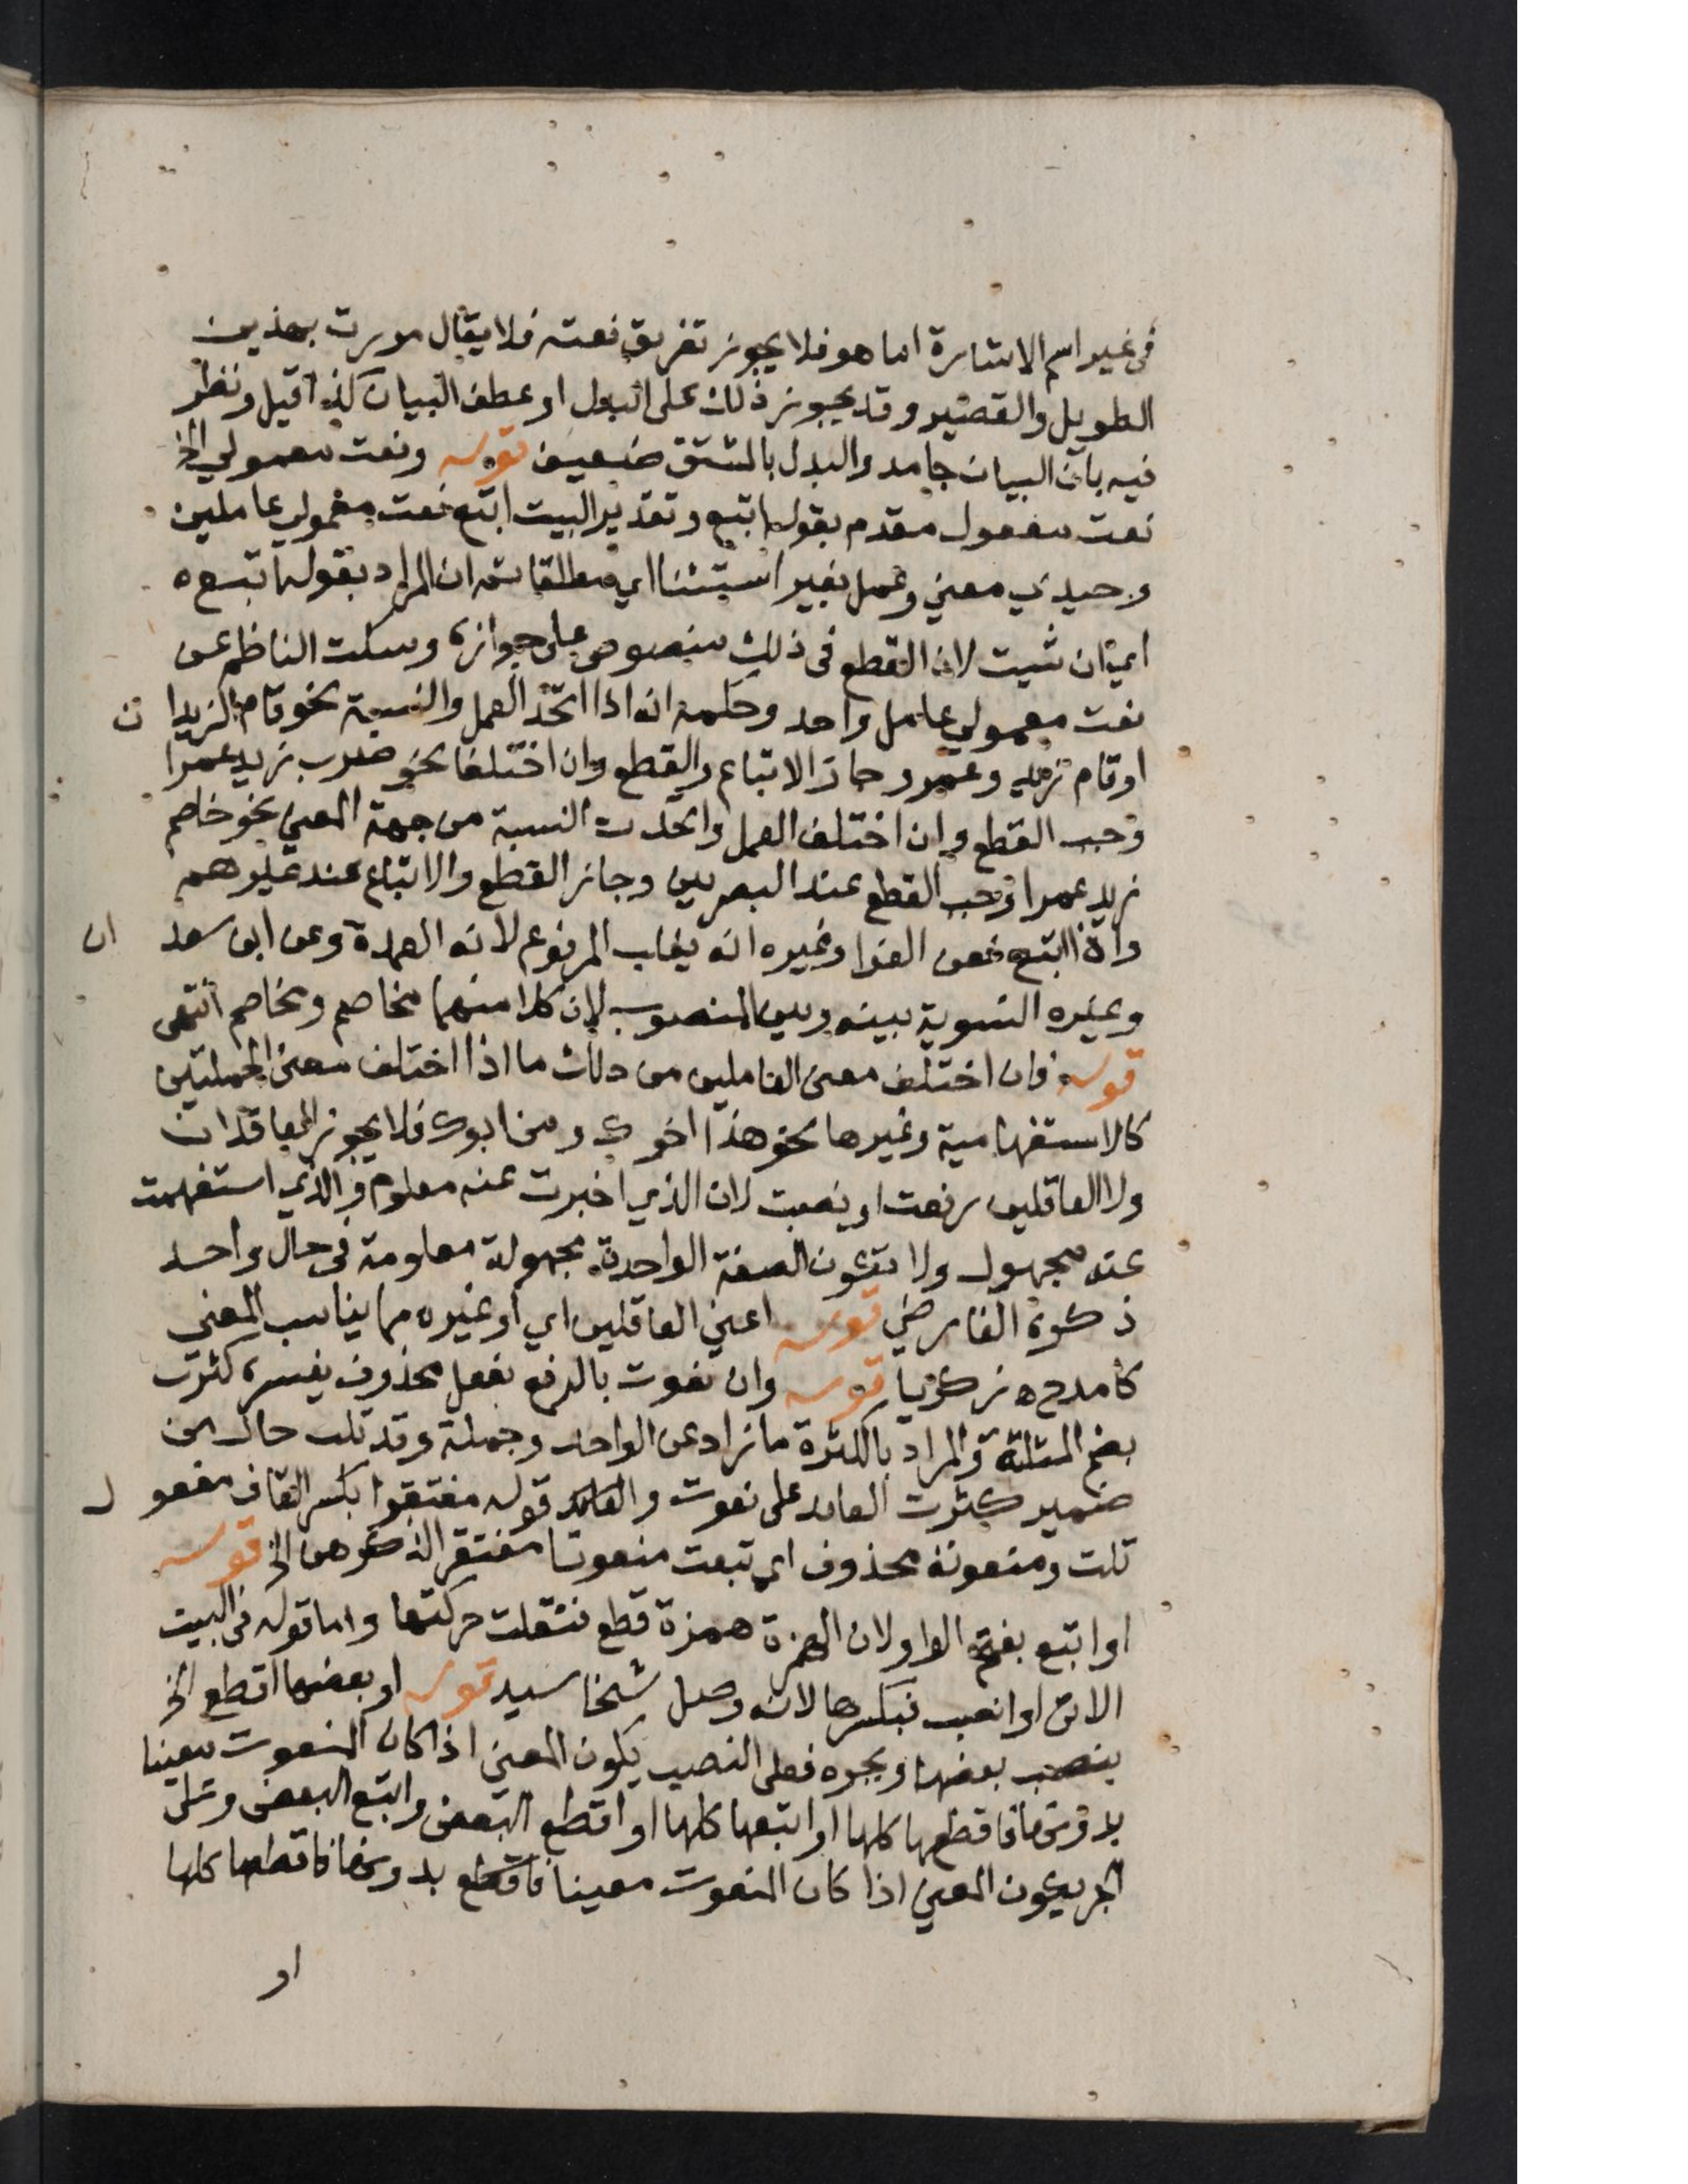 في غير اسم الاشارة اما هو فلا يجوز تفريق نعته فلا يقال مررت بهذين
الطويل والقصير وقد يجوز ذلك على البدل او عطف البيان كذا قيل ونظر
فيه بان البيان جامد والبدل بالمشتق ضعيف قوله ونعت معمولي الخ
نعت مفعول مقدم بقوله اتبع وتقدير البيت اتبع نعت معمولي عاملين
وحيدي معني وعمل بغير استثنا اي مطلقا ثم ان المراد بقوله اتبع
اي ان شيت لان القطع في ذلك منصوص على جوازه وسكت الناظم عن
نعت معمولي عامل واحد وحكمه انه اذا اتحد العمل والنسبة نحو قام الزيدان
او قام زيد وعمرو جاز الاتباع والقطع وان اختلفا نحو ضرب زيد عمرا
وجب القطع وان اختلف العمل واتحدت النسبة من جهة المعني نحو خاصم
زيد عمرا وجب القطع عند البصريين وجاز القطع والاتباع عند غيرهم
واذا اتبع فعن الفرا وغيره انه يغلب المرفوع لانه العمدة وعن ابن سعدان
وغيره التسوية بينه وبين المنصوب لان كلا منهما مخاصم ومخاصم انتهى
قوله فان اختلف معنى العاملين من ذلك ما اذا اختلف معنى الجملتين
كالاستفهامية وغيرها نحو هذا اخوك ومن ابوك فلا يجوز العاقلان
ولا العاقلين رفعت او نصبت لان الذي اخبرت عنه معلوم والذي استفهمت
عنه مجهول ولا تكون الصفة الواحدة مجهولة معلومة في حال واحد
ذكره الفارضي قوله اعني العاقلين اي او غيره مما يناسب المعني
كامدح زكريا قوله وان نعوت بالرفع بفعل محذوف يفسره كثرت
بضم المثلثة والمراد بالكثرة ما زاد عن الواحد وجملة وقد تلت حال من
ضمير كثرت العايد على نعوت قوله مفتقرا بكسر القاف مفعول
تلت ومنعوته محذوف اي تبعت منعوتا مفتقرا لذكرهن الخ قوله
او اتبع بفتح الواو لان الهمزة همزة قطع فنقلت حركتها واما قوله في البيت
الاتي او انصب فبكسرها لانه وصل شيخنا سيد قوله او بعضها اقطع الخ
بنصب بعضها وبجره فعلى النصب يكون المعني اذا كان المنعوت معينا
بدونها فاقطعها كلها او اتبعها كلها او اقطع البعض واتبع البعض وعلى
الجر يكون المعني اذا كان المنعوت معينا فاقطع بدونها فاقطعها كلها
او